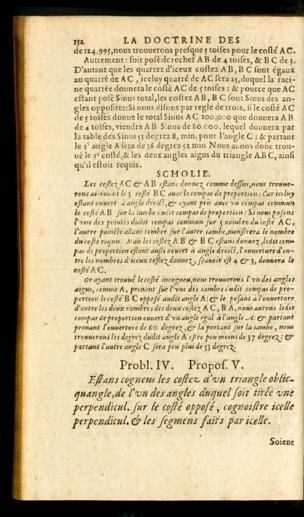 152 LA DOCTRINE DES
de 124.995, nous trouverons presque 5 toises pour le costé AC.
Autrement: soit posé derechef AB de 4 toises, & BC de 3.
D'autant que les quarrez d'iceux costez AB, BC sont égaux
au quarré de AC, iceluy quarré de AC sera 25, duquel la raci-
ne quatrée donnera le costé AC de 5 toises: & pource que AC
estant posé Sinus total, les costez AB, BC sont Sinus des an-
gles opposites: Si nous disons par regle de trois, si le costé AC
de 5 toises donne le total Sinus AC 100,000 que donnera AB
de 4 toises, viendra AB Sinus de 80 000, lequel donnera par
la table des Sinus 53 degrez 8, min. pour l'angle C; & partant
le 3e angle A sera de 36 degrez 52 min Nous avons donc trou-
vé le 3e costé, & les deux angles aigus du triangle ABC, ainsi
qu'il estoit requis.
SCHOLIE.
Les costez AC & AB estans donnez comme dessus, nous trouve-
rons aisément le 3 costé BC avec le compas de proportion: Car iceluy
estant ouvert à angle droict, & ayant pris avec un compas commun
le costé AB sur la jambe dudit compas de proportion: Si nous posons
l'une des pointes dudit compas commun sur 5 nombre du costé AC,
l'autre pointe allant tomber sur l'autre jambe, monstrera le nombre
du costé requis. Mais les costez AB & BC estans donnez, ledit com-
pas de proportion estant aussi ouvert à angle droict, l'ouverture d'en-
tre les nombres d'iceux costez donnez, sçavoir est 4 & 3, donnera le
costé AC.
Or ayant trouvé le costé incogneu, nous trouverons l'un des angles
aigus, comme A, prenant sur l'une des jambes dudit compas de pro-
portion le costé BC opposé audit angle A: & le posant à l'ouverture
d'entre les deux nombres des deux costez AC, BA, nous aurons ledit
compas de proportion ouvert d'un angle égal à l'angle A. & partant
prenant l'ouverture de 60 degrez, & la portant sur la jambe, nous
trouverons les degrez dudit angle A estre peu moins de 37 degrez: &
partant l'autre angle C sera peu plus de 53 degrez.
Probl. IV. Propos. V.
Estans cogneus les costez d'vn triangle oblic-
quangle, de l'vn des angles duquel soit tirée vne
perpendicul. sur le costé opposé, cognoistre icelle
perpendicul. & les segmens faits par icelle.
Soient